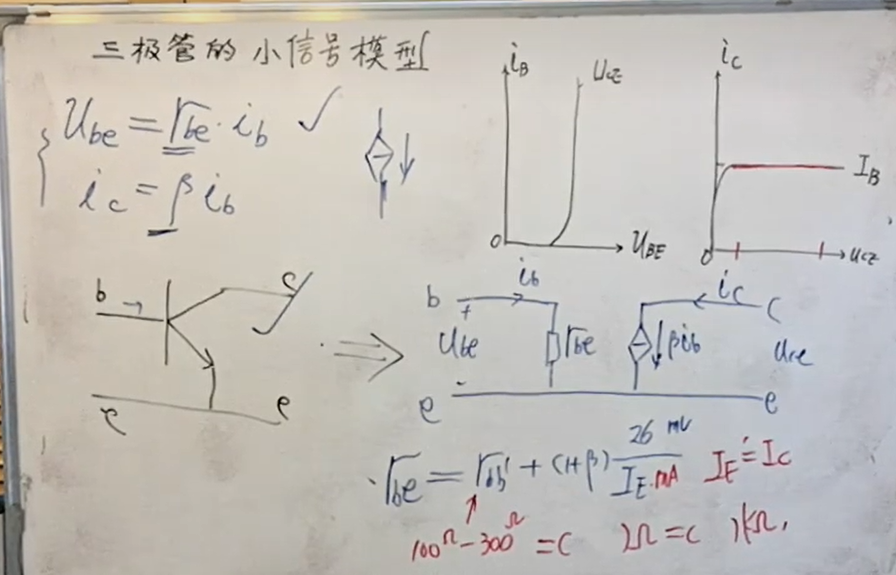 三极管的小信号模型
u_be = r_be · i_b ✓
i_c = β i_b
i_B
u_CE
O
u_BE
i_C
I_B
O
u_CE
b →
c
e
e
⇒
b
i_b
+
u_be
-
r_be
βi_b
i_c
c
u_ce
e
e
r_be = r_bb' + (1+β) 26 mV / I_E·mA
I_E ≐ I_C
100Ω-300Ω